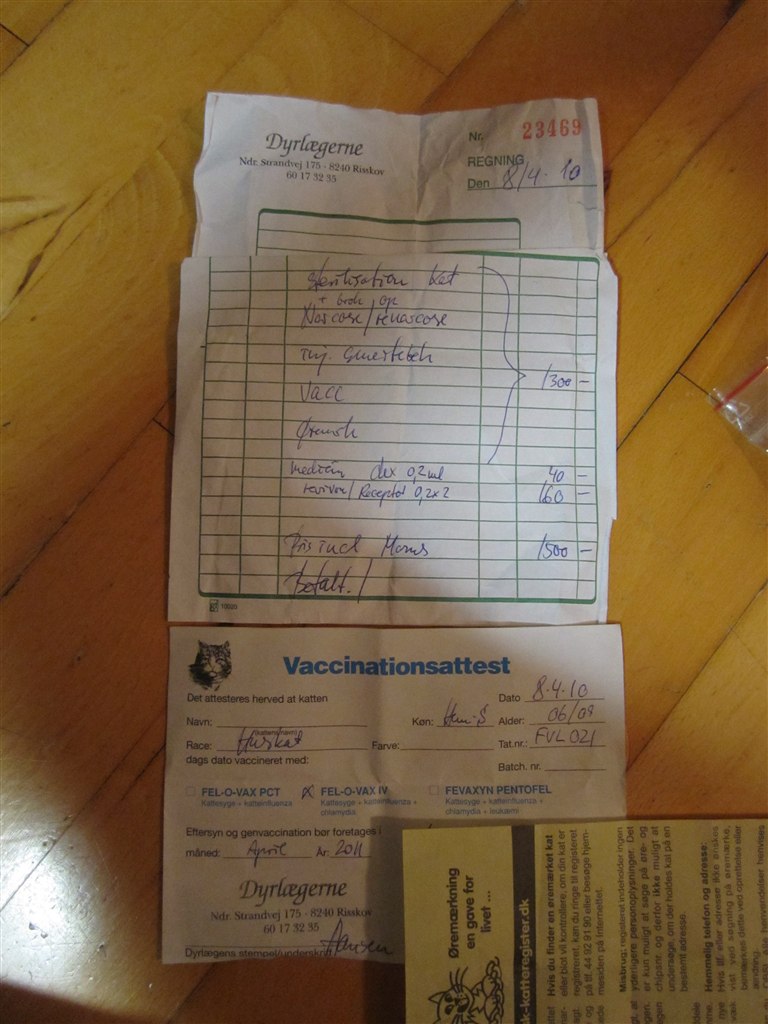 Dyrlægerne
Ndr. Strandvej 175 - 8240 Risskov
60 17 32 35
Nr. 23469
REGNING
Den 8/4-10
Sterilisation kat
+ brok op
Narcose/
inj. smertebeh
Vacc
Ørемærk
medicin dex 0,2ml 40 -
/ Receptal 0,2x2 160 -
1300 -
Pris incl Moms 1500 -
Betalt.
10020
Vaccinationsattest
Det attesteres herved at katten
Dato 8.4.10
Navn:
Køn: Hun
Alder: 06/09
(kattens navn)
Race: Huskat
Farve:
Tat.nr.: FVL021
dags dato vaccineret med:
Batch. nr.
FEL-O-VAX PCT
Kattesyge + katteinfluenza
X FEL-O-VAX IV
Kattesyge + katteinfluenza +
chlamydia
FEVAXYN PENTOFEL
Kattesyge + katteinfluenza +
chlamydia + leukæmi
Eftersyn og genvaccination bør foretages i
måned: April År: 2011
Dyrlægerne
Ndr. Strandvej 175 - 8240 Risskov
60 17 32 35
Dyrlægens stempel/underskrift Hansen
Øremærkning
en gave for
livet ...
k-katteregister.dk
Hvis du finder en øremærket kat
eller blot vil kontrollere, om din kat er
registreret, kan du ringe til registeret
på tlf. 44 92 91 90 eller besøge hjem-
mesiden på Internettet.
Misbrug: registeret indeholder ingen
yderligere personoplysninger. Det
er kun muligt at søge på øre- og
chipnr. og derfor ikke muligt at
undersøge, om der holdes kat på en
bestemt adresse.
Hemmelig telefon og adresse:
Hvis tlf. eller adresse ikke ønskes
vist ved søgning på øremærke,
bemærkes dette ved oprettelse eller
ændring.